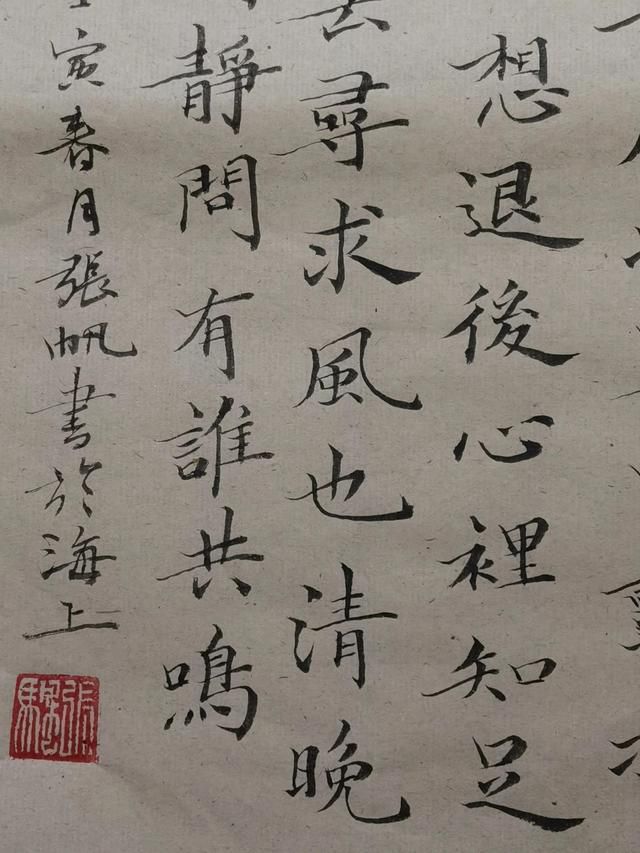 想退後心裡知足
去尋求風也清晚
靜問有誰共鳴
寅春月張帆書於海上